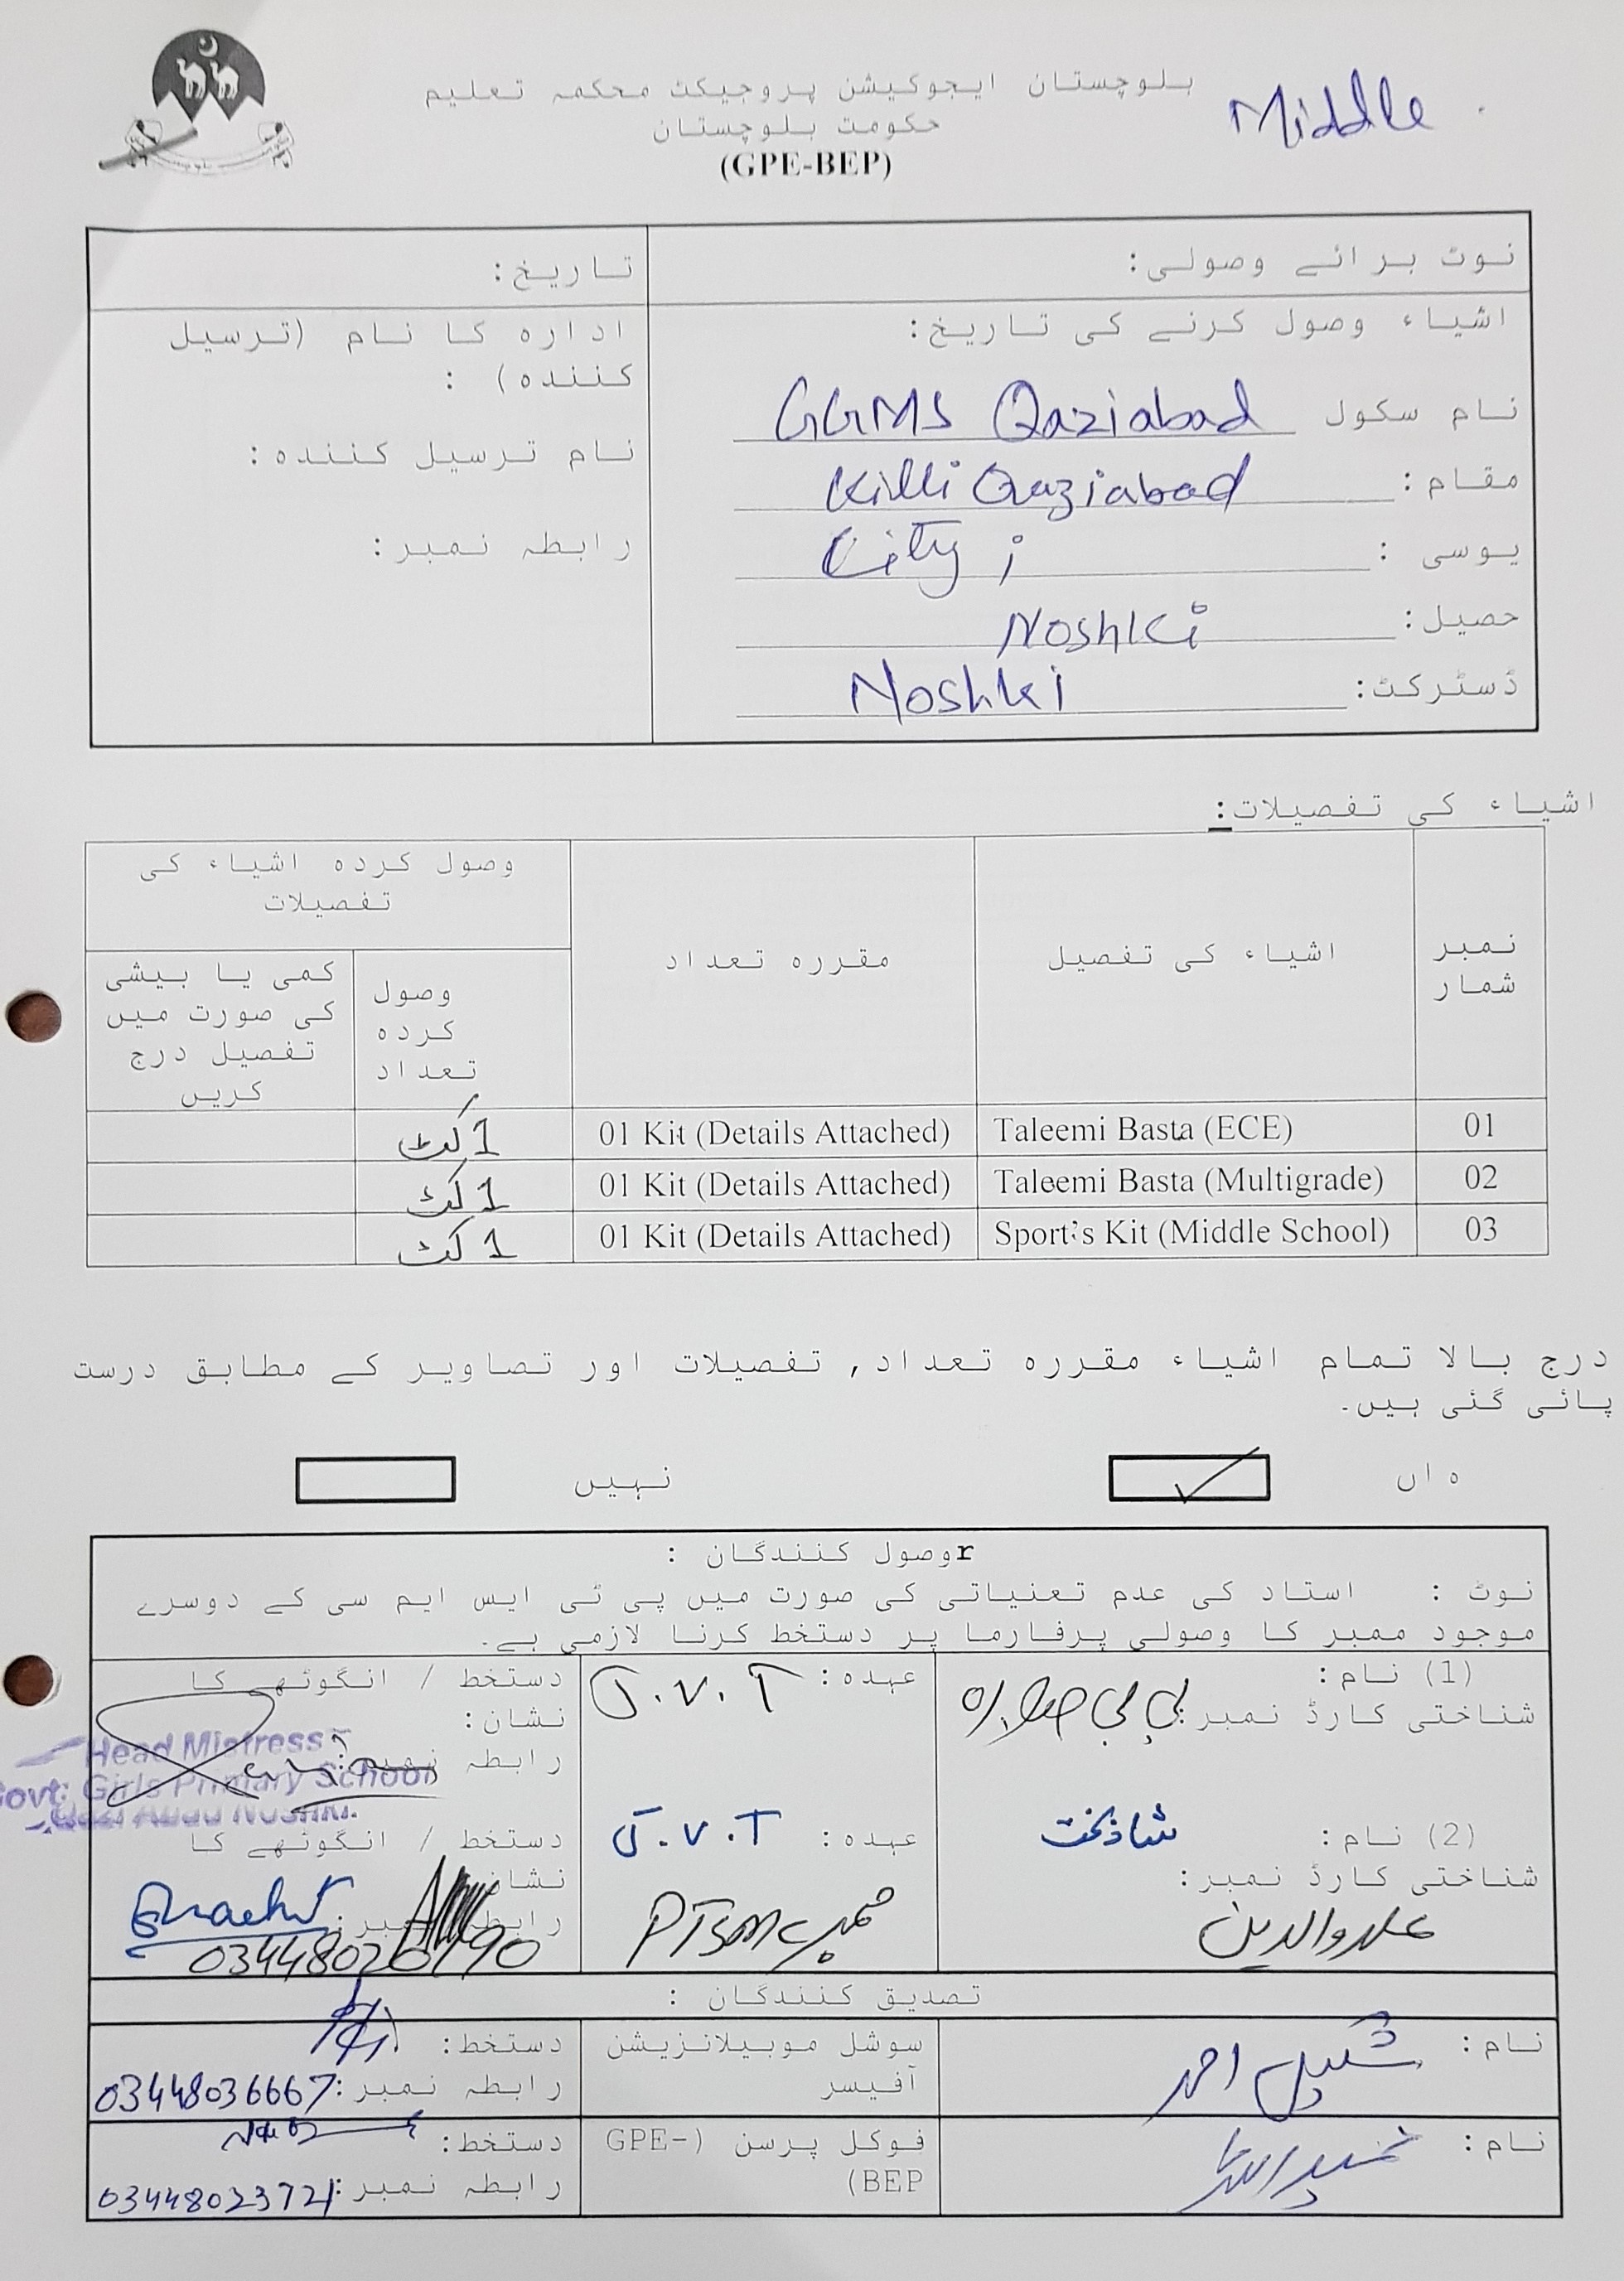 بلوچستان ایجوکیشن پروجیکٹ محکمہ تعلیم
Middle
حکومت بلوچستان
(GPE-BEP)
نوٹ برائے وصولی:
تاریخ:
اشیاء وصول کرنے کی تاریخ:
نام سکول GGMS Qaziabad
مقام: Killi Qaziabad
یوسی : City i
حصیل: Noshki
ڈسٹرکٹ: Noshki
ادارہ کا نام (ترسیل
کنندہ) :
نام ترسیل کنندہ:
رابطہ نمبر:
اشیاء کی تفصیلات:
نمبر شمار
اشیاء کی تفصیل
مقررہ تعداد
وصول کردہ اشیاء کی
تفصیلات
وصول
کردہ
تعداد
کمی یا بیشی
کی صورت میں
تفصیل درج
کریں
01 Taleemi Basta (ECE) 01 Kit (Details Attached) 1 کٹ
02 Taleemi Basta (Multigrade) 01 Kit (Details Attached) 1 کٹ
03 Sport's Kit (Middle School) 01 Kit (Details Attached) 1 کٹ
درج بالا تمام اشیاء مقررہ تعداد, تفصیلات اور تصاویر کے مطابق درست
پائی گئی ہیں۔
ہاں ✓
نہیں
rوصول کنندگان :
نوٹ : استاد کی عدم تعنیاتی کی صورت میں پی ٹی ایس ایم سی کے دوسرے
موجود ممبر کا وصولی پرفارما پر دستخط کرنا لازمی ہے۔
(1) نام:
شناختی کارڈ نمبر: بی بی
عہدہ: J.V.T
دستخط / انگوٹھے کا
نشان:
رابطہ نمبر:
Head Mistress
Govt: Girls Primary School
(2) نام: شاذبخت
شناختی کارڈ نمبر:
عہدہ: J.V.T
PTSMC ممبر
دستخط / انگوٹھے کا
نشان
رابطہ نمبر:
تصدیق کنندگان :
نام: شکیل احمد
سوشل موبیلائزیشن
آفیسر
دستخط:
رابطہ نمبر: 03448036667
نام:
فوکل پرسن (GPE-
BEP)
دستخط:
رابطہ نمبر: 03448023721